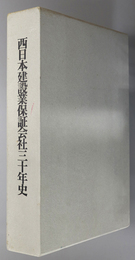 西日本建設業保証会社三十年史